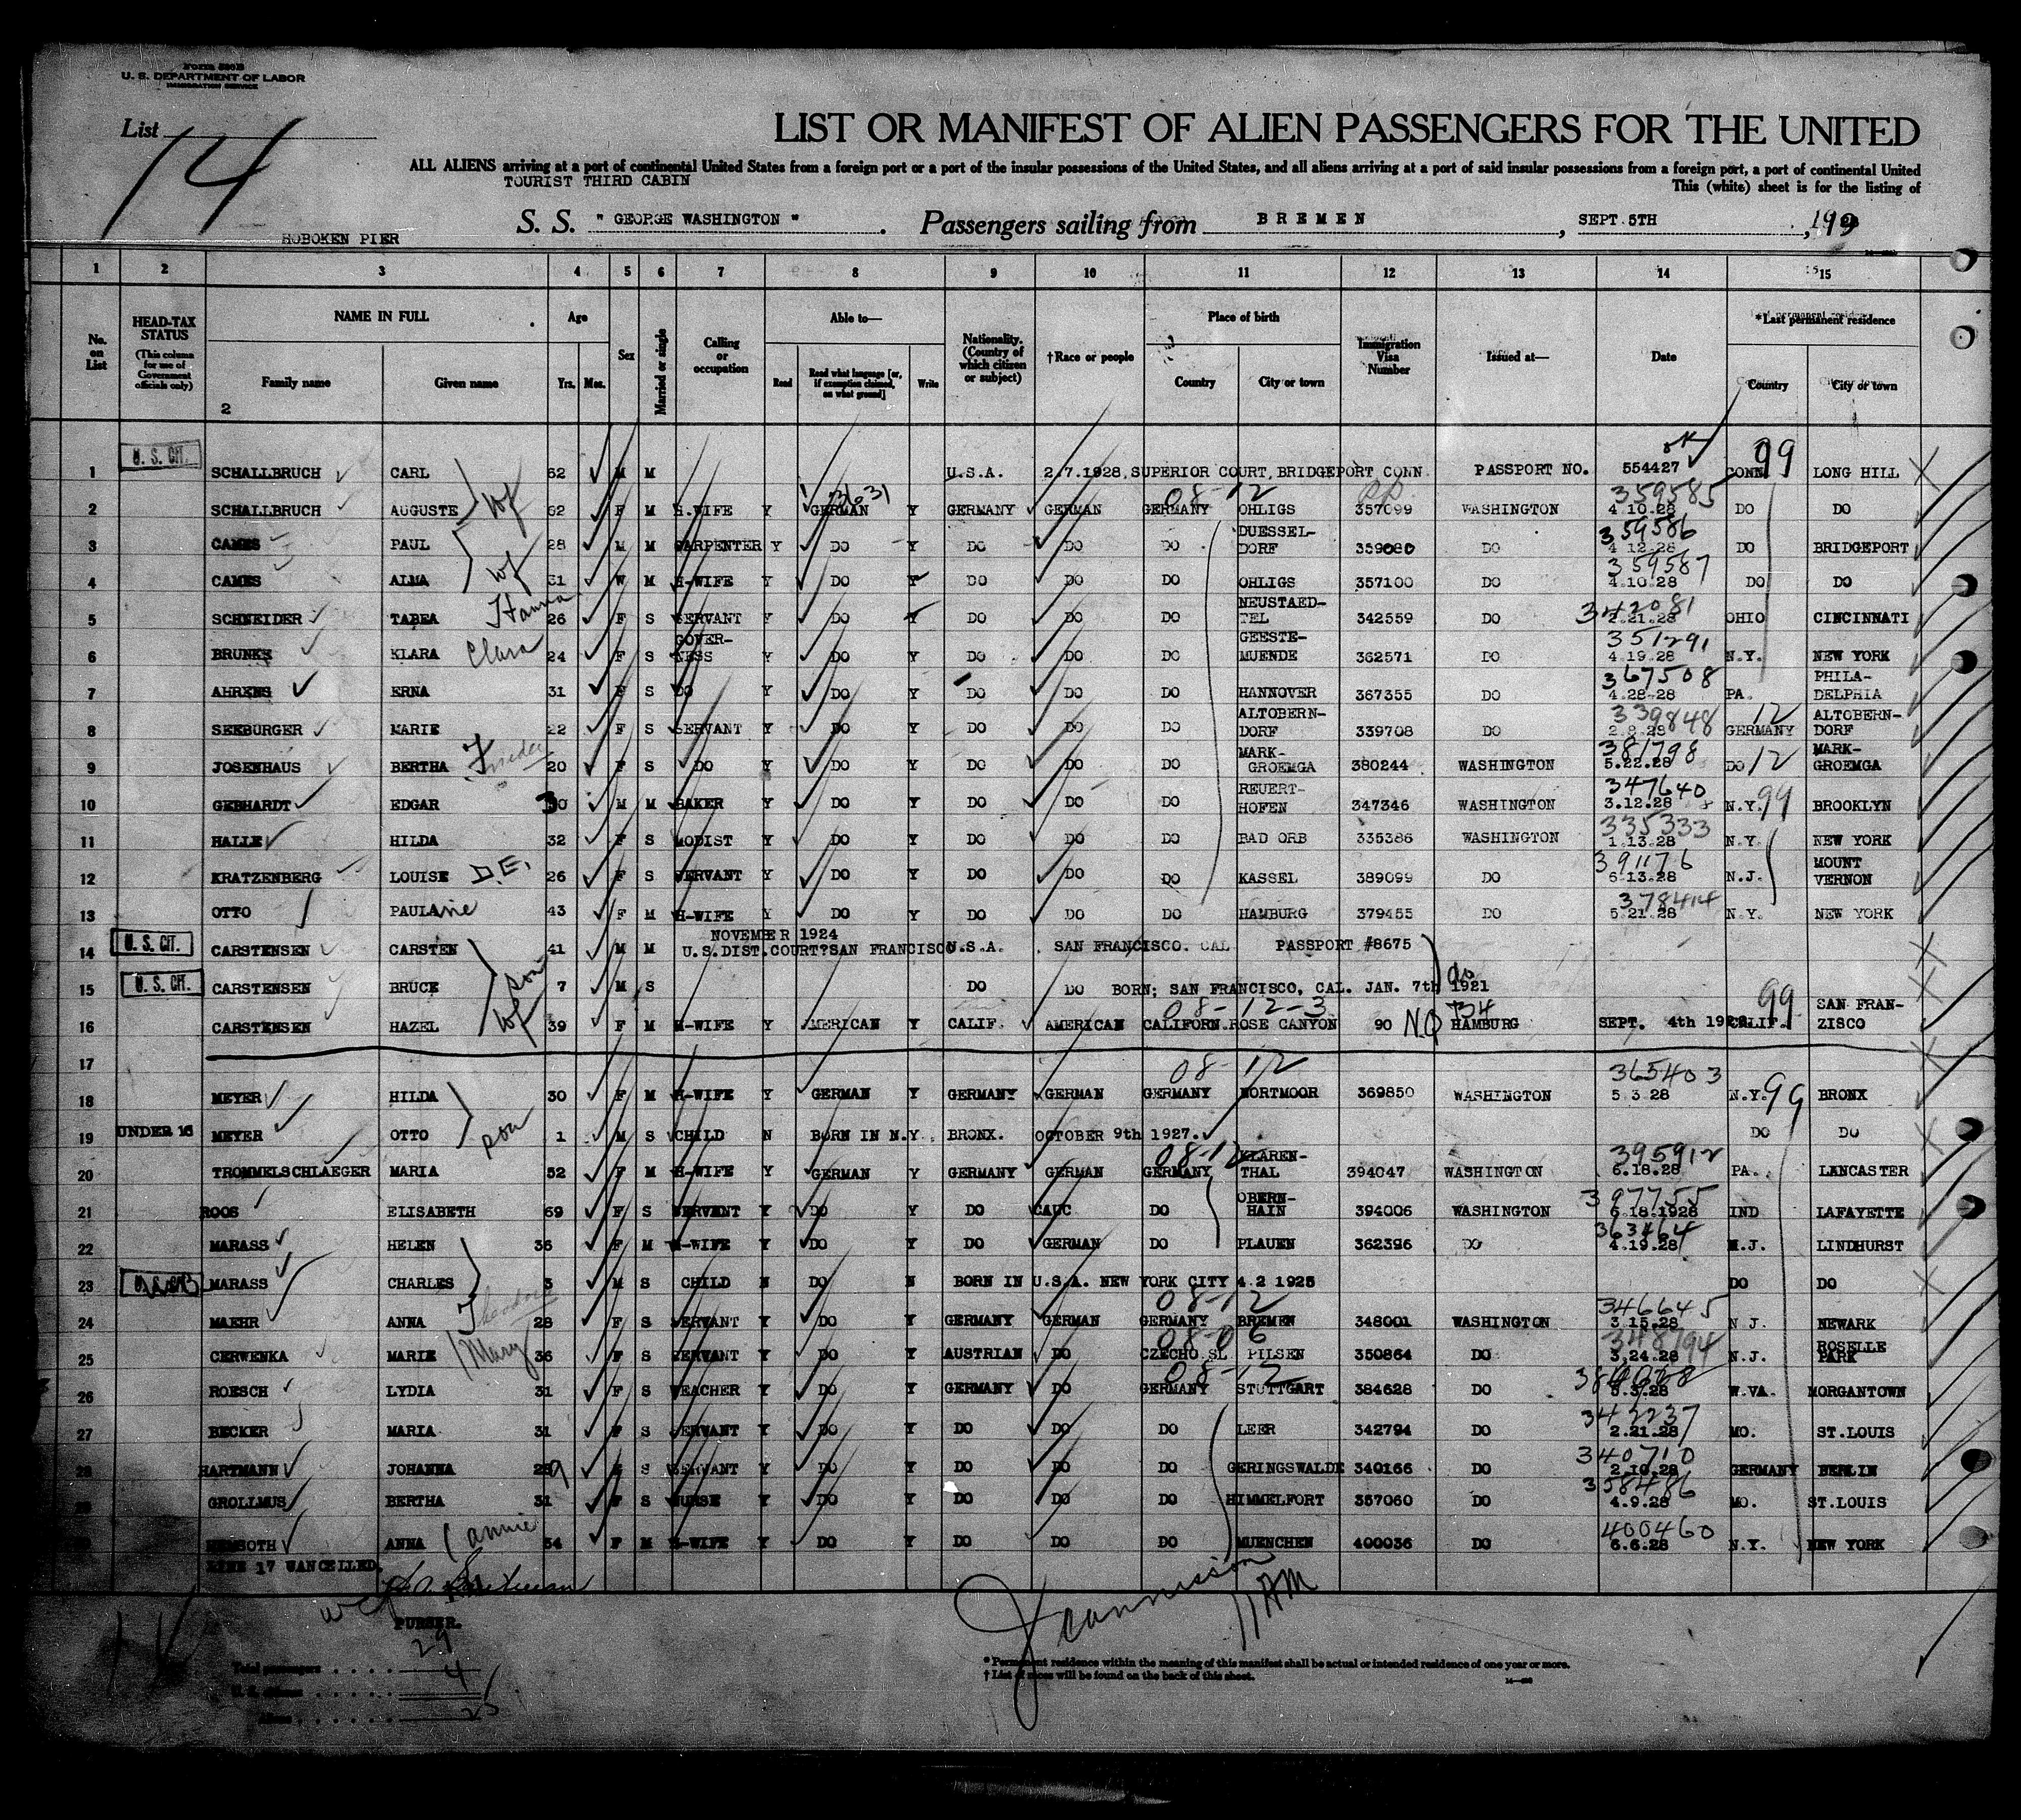 Form 500B
U. S. DEPARTMENT OF LABOR
IMMIGRATION SERVICE
List 14
LIST OR MANIFEST OF ALIEN PASSENGERS FOR THE UNITED
ALL ALIENS arriving at a port of continental United States from a foreign port or a port of the insular possessions of the United States, and all aliens arriving at a port of said insular possessions from a foreign port, a port of continental United
TOURIST THIRD CABIN
This (white) sheet is for the listing of
S. S. " GEORGE WASHINGTON " . Passengers sailing from BREMEN , SEPT.5TH , 192
HOBOKEN PIER
1 2 3 4 5 6 7 8 9 10 11 12 13 14 15
No. on List
HEAD-TAX STATUS (This column for use of Government officials only)
NAME IN FULL Family name Given name
Age Yrs. Mos.
Sex
Married or single
Calling or occupation
Able to— Read Read what language [or, if exemption claimed, on what ground] Write
Nationality. (Country of which citizen or subject)
†Race or people
Place of birth Country City or town
Immigration Visa Number
Issued at—
Date
*Last permanent residence Country City or town
2
1 U. S. CIT. SCHALLBRUCH CARL 62 M M U.S.A. 2.7.1928,SUPERIOR COURT,BRIDGEPORT CONN. PASSPORT NO. 554427 ok CONN 99 LONG HILL
2 SCHALLBRUCH AUGUSTE wf 62 F M H-WIFE Y GERMAN Y GERMANY GERMAN GERMANY 08-12 OHLIGS 357099 WASHINGTON 359585 4.10.28 DO DO
3 CAMES PAUL 28 M M CARPENTER Y DO Y DO DO DO DUESSEL-DORF 359080 DO 359586 4.12.28 DO BRIDGEPORT
4 CAMES ALMA wf 31 W M H-WIFE Y DO Y DO DO DO OHLIGS 357100 DO 359587 4.10.28 DO DO
5 SCHNEIDER TABEA Hanna 26 F S SERVANT Y DO Y DO DO DO NEUSTAED-TEL 342559 DO 342081 2.21.28 OHIO CINCINNATI
6 BRUNKS KLARA Clara 24 F S GOVER-NESS Y DO Y DO DO DO GEESTE-MUENDE 362571 DO 351291 4.19.28 N.Y. NEW YORK
7 AHRENS ERNA 31 F S DO Y DO Y DO DO DO HANNOVER 367355 DO 367508 4.28-28 PA. PHILA-DELPHIA
8 SEEBURGER MARIE 22 F S SERVANT Y DO Y DO DO DO ALTOBERN-DORF 339708 DO 339848 2.8.28 12 GERMANY ALTOBERN-DORF
9 JOSENHAUS BERTHA Frieda 20 F S DO Y DO Y DO DO DO MARK-GROEMGA 380244 WASHINGTON 381798 5.22.28 DO 12 MARK-GROEMGA
10 GEBHARDT EDGAR 30 M M BAKER Y DO Y DO DO DO REUERT-HOFEN 347346 WASHINGTON 347640 3.12.28 N.Y. 99 BROOKLYN
11 HALLE HILDA 32 F S MODIST Y DO Y DO DO DO BAD ORB 335386 WASHINGTON 335333 1.13.28 N.Y. NEW YORK
12 KRATZENBERG LOUISE D.E. 26 F S SERVANT Y DO Y DO DO DO KASSEL 389099 DO 391176 6-13.28 N.J. MOUNT VERNON
13 OTTO PAULA ine 43 F M H-WIFE Y DO Y DO DO DO HAMBURG 379455 DO 378414 5.21.28 N.Y. NEW YORK
14 U. S. CIT. CARSTENSEN CARSTEN 41 M M NOVEMBER 1924 U.S.DIST.COURT?SAN FRANCISCO U.S.A. SAN FRANCISCO. CAL PASSPORT #8675
15 U. S. CIT. CARSTENSEN BRUCE son 7 M S DO DO BORN; SAN FRANCISCO, CAL. JAN. 7th 1921 do
16 CARSTENSEN HAZEL wf 39 F M H-WIFE Y AMERICAN Y CALIF. AMERICAN CALIFORN. 08-12-3 ROSE CANYON 90 NQ HAMBURG SEPT. 4th 1928 CALIF. 99 SAN FRAN-ZISCO
17
18 MEYER HILDA 30 F M H-WIFE Y GERMAN Y GERMANY GERMAN GERMANY 08-12 NORTMOOR 369850 WASHINGTON 365403 5 3.28 N.Y. 99 BRONX
19 UNDER 16 MEYER OTTO son 1 M S CHILD N BORN IN N.Y. BRONX. OCTOBER 9th 1927. DO DO
20 TROMMELSCHLAEGER MARIA 52 F M H-WIFE Y GERMAN Y GERMANY GERMAN GERMANY 08-12 KLAREN-THAL 394047 WASHINGTON 395912 6.18.28 PA. LANCASTER
21 ROOS ELISABETH 69 F S SERVENT Y DO Y DO CAUC DO OBERN-HAIN 394006 WASHINGTON 397755 6.18.1928 IND LAFAYETTE
22 MARASS HELEN 36 F M H-WIFE Y DO Y DO GERMAN DO PLAUEN 362396 DO 363464 4.19.28 N.J. LINDHURST
23 MARASS CHARLES 3 M S CHILD N DO N BORN IN U.S.A. NEW YORK CITY 4.2 1925 DO DO
24 MAEHR ANNA Theodora 28 F S SERVANT Y DO Y GERMANY GERMAN GERMANY 08-12 BREMEN 348001 WASHINGTON 346645 3.15.28 N J. NEWARK
25 CERWENKA MARIE (Mary 36 F S SERVANT Y DO Y AUSTRIAN DO CZECHO.SL 08-06 PILSEN 350864 DO 348794 3,24.28 N.J. ROSELLE PARK
26 ROESCH LYDIA 31 F S TEACHER Y DO Y GERMANY DO GERMANY 08-12 STUTTGART 384628 DO 6.3.28 W.VA. MORGANTOWN
27 BECKER MARIA 31 F S SERVANT Y DO Y DO DO DO LEER 342794 DO 342237 2.21.28 MO. ST.LOUIS
28 HARTMANN JOHANNA 29 F S SERVANT Y DO Y DO DO DO GERINGSWALDE 340166 DO 340710 2.10.28 GERMANY BERLIN
29 GROLLMUS BERTHA 31 F S NURSE Y DO Y DO DO DO HIMMELFORT 357060 DO 358486 4.9.28 MO. ST.LOUIS
30 HEMSOTH ANNA (annie 54 F M H-WIFE Y DO Y DO DO DO MUENCHEN 400036 DO 400460 6.6.28 N.Y. NEW YORK
LINE 17 WANCELLED.
PURSER.
Jeannisson 11 AM
Total passengers 29
U. S. citizens 4
Aliens 25
* Permanent residence within the meaning of this manifest shall be actual or intended residence of one year or more.
† List of races will be found on the back of this sheet.